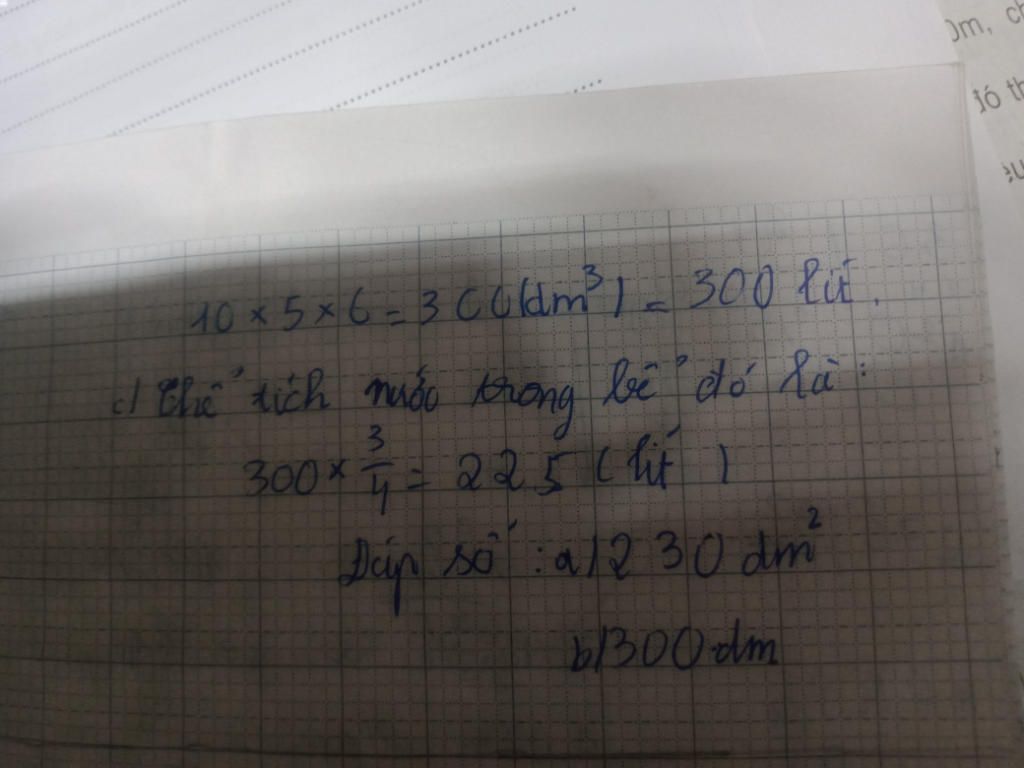 0m, ch
đó th
10 × 5 × 6 = 300 (dm³) = 300 lít.
c) Thể tích nước trong bể đó là:
300 × 3/4 = 225 (lít)
Đáp số: a) 230 dm²
b) 300 dm